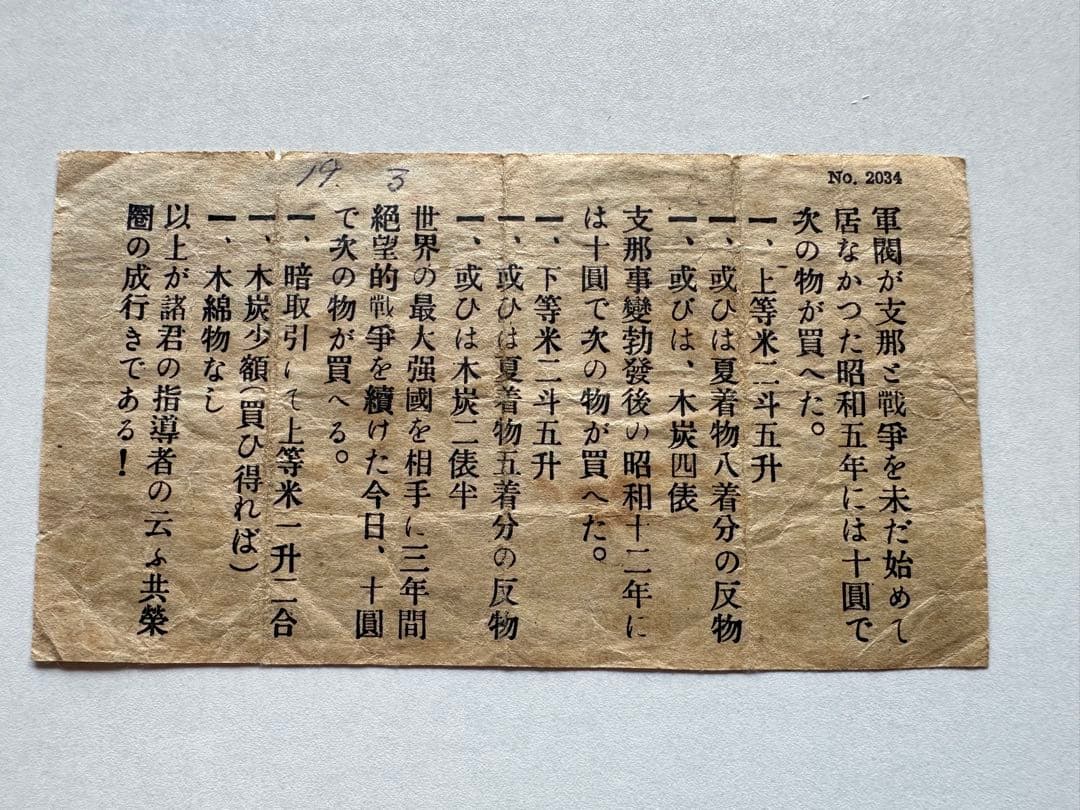 No. 2034
19 3
軍閥が支那と戰爭を未だ始めて
居なかつた昭和五年には十圓で
次の物が買へた。
一、上等米二斗五升
一、或ひは夏着物八着分の反物
一、或びは、木炭四俵
支那事變勃發後の昭和十二年に
は十圓で次の物が買へた。
一、下等米二斗五升
一、或ひは夏着物五着分の反物
一、或ひは木炭二俵半
世界の最大强國を相手に三年間
絕望的戰爭を續けた今日、十圓
で次の物が買へる。
一、暗取引にて上等米一升二合
一、木炭少額(買ひ得れば)
一、木綿物なし
以上が諸君の指導者の云ふ共榮
圈の成行きである!